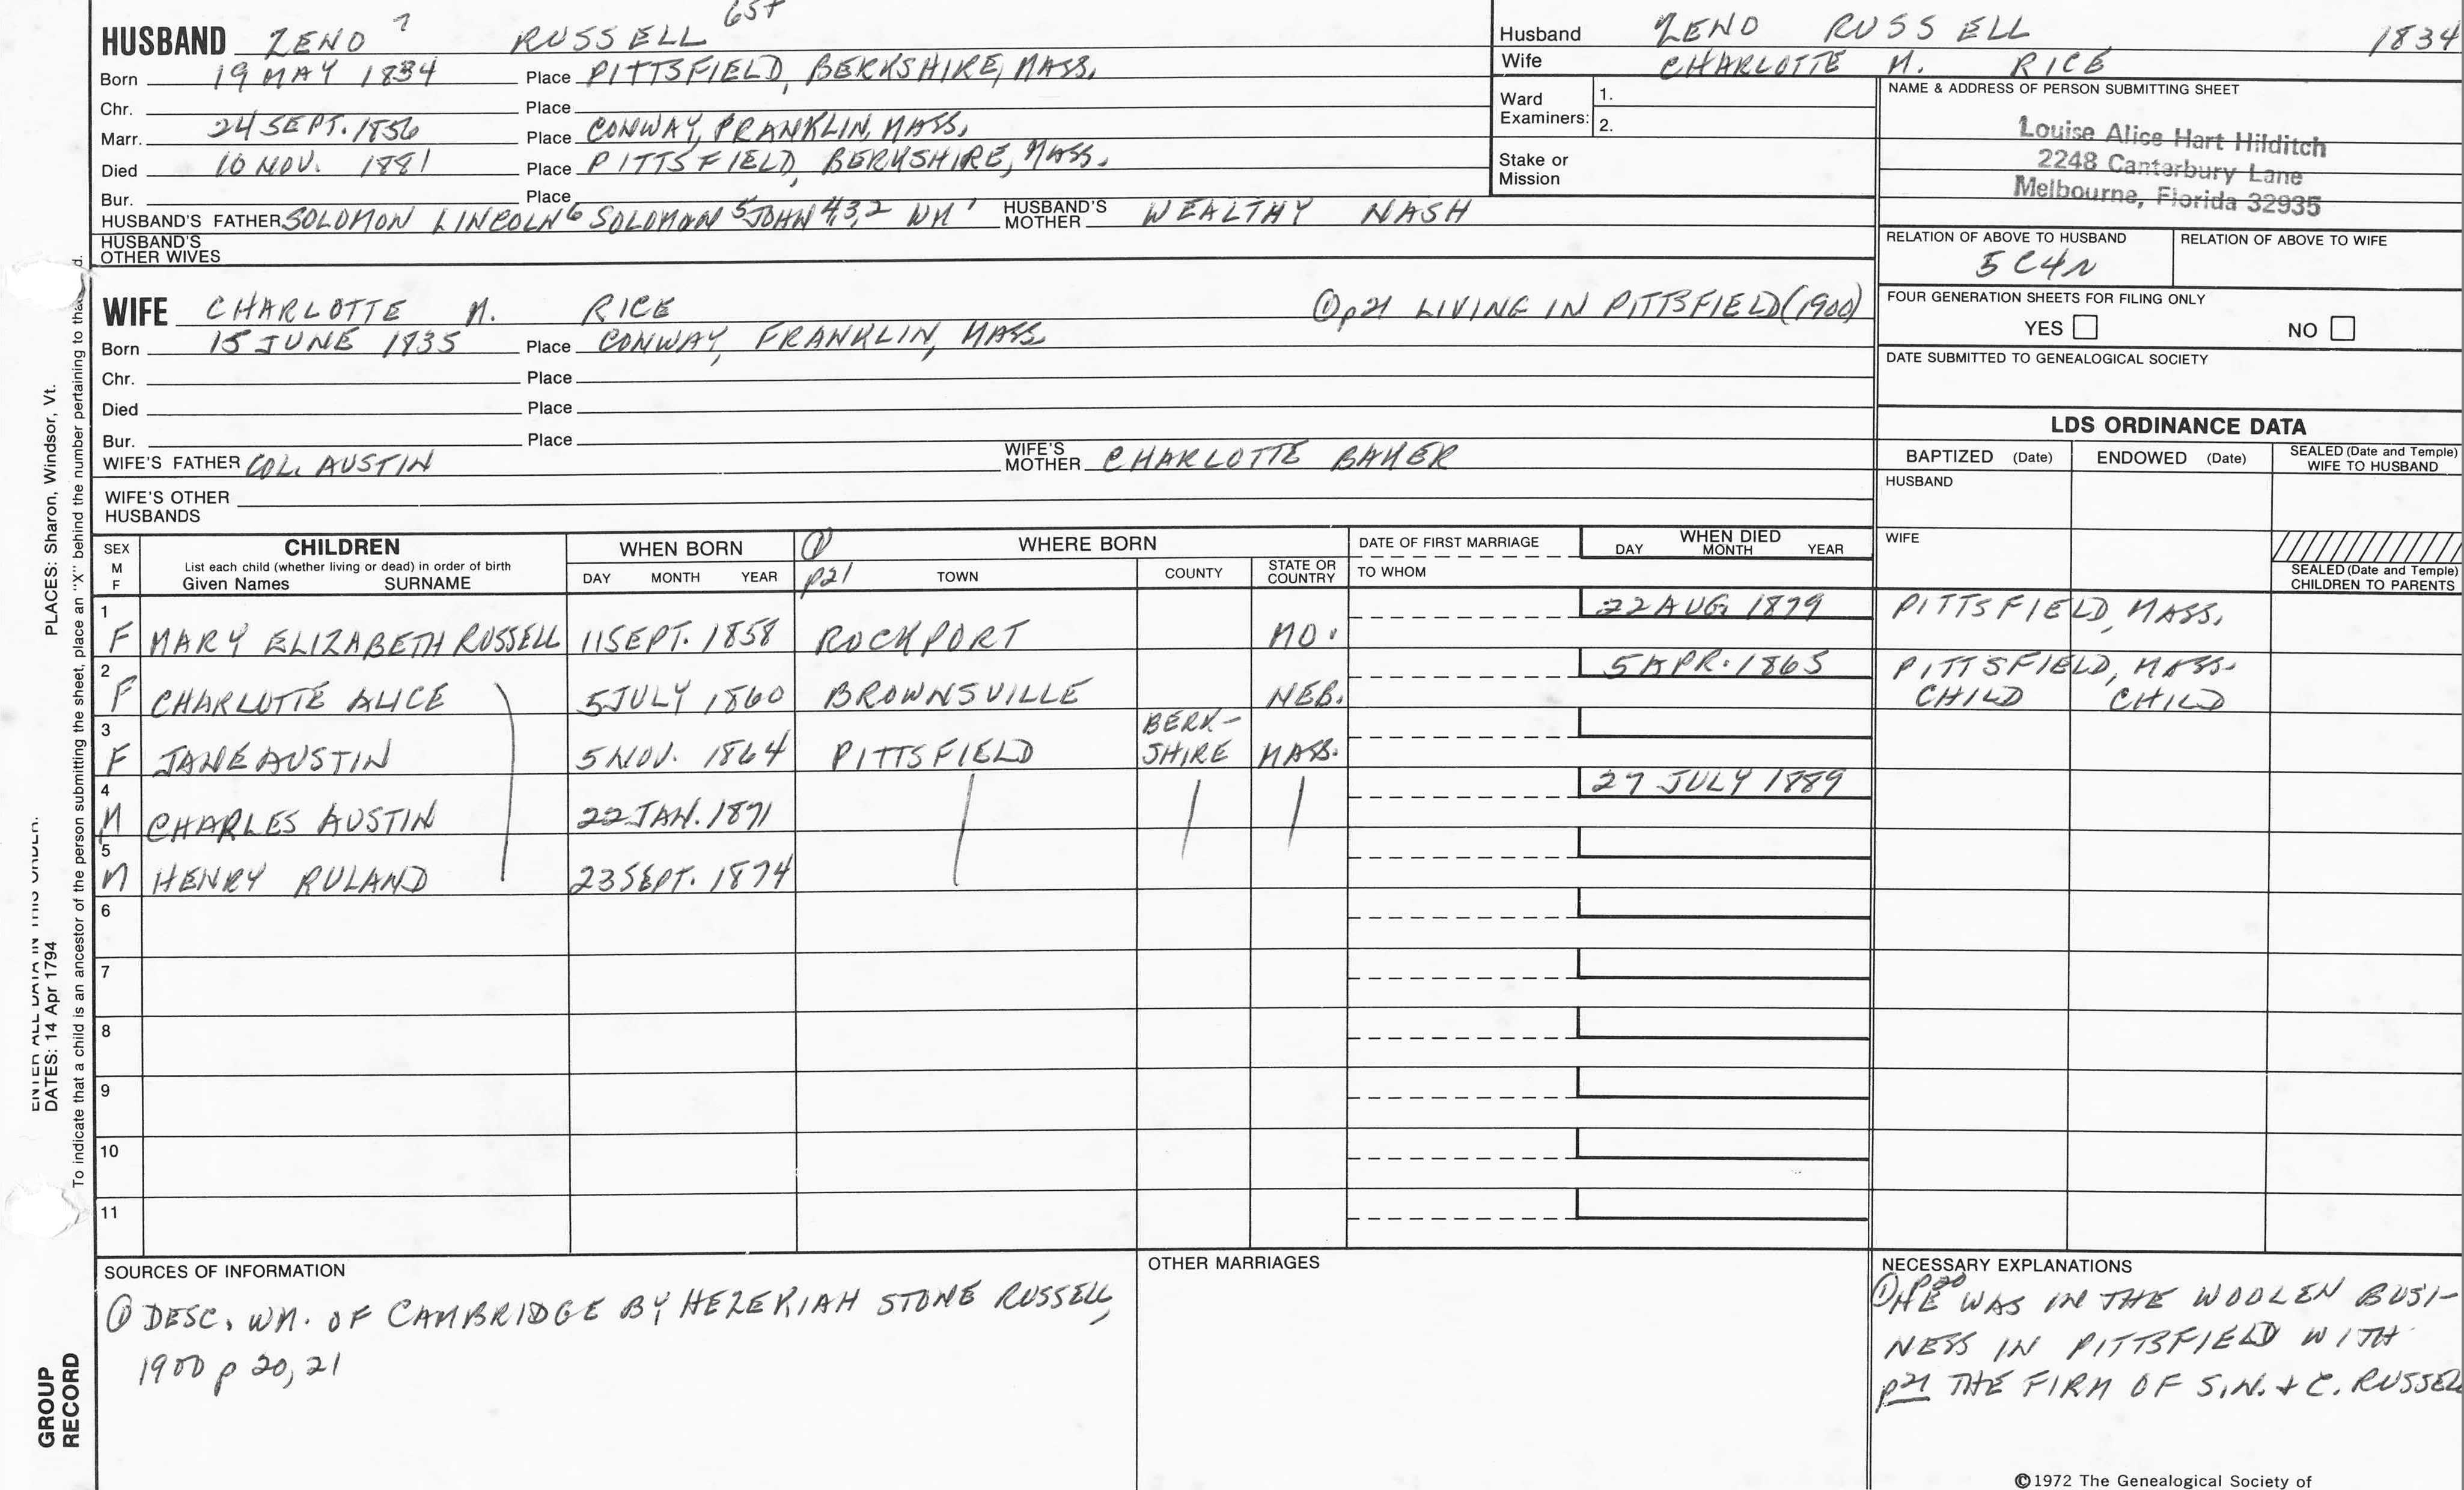 65+
HUSBAND ZENO 7 RUSSELL
Born 19 MAY 1834 Place PITTSFIELD, BERKSHIRE, MASS.
Chr. Place
Marr. 24 SEPT. 1856 Place CONWAY, FRANKLIN, MASS.
Died 10 NOV. 1881 Place PITTSFIELD, BERKSHIRE, MASS.
Bur. Place
HUSBAND'S FATHER SOLOMON LINCOLN 6 SOLOMON 5 JOHN 4,3,2 WM 1 HUSBAND'S MOTHER WEALTHY NASH
HUSBAND'S OTHER WIVES
Husband ZENO RUSSELL 1834
Wife CHARLOTTE M. RICE
Ward Examiners: 1.
2.
Stake or Mission
NAME & ADDRESS OF PERSON SUBMITTING SHEET
Louise Alice Hart Hilditch
2248 Canterbury Lane
Melbourne, Florida 32935
RELATION OF ABOVE TO HUSBAND RELATION OF ABOVE TO WIFE
5C4R
FOUR GENERATION SHEETS FOR FILING ONLY
YES NO
DATE SUBMITTED TO GENEALOGICAL SOCIETY
WIFE CHARLOTTE M. RICE ① p21 LIVING IN PITTSFIELD (1900)
Born 15 JUNE 1835 Place CONWAY, FRANKLIN, MASS
Chr. Place
Died Place
Bur. Place
WIFE'S FATHER COL. AUSTIN WIFE'S MOTHER CHARLOTTE BAKER
WIFE'S OTHER HUSBANDS
LDS ORDINANCE DATA
BAPTIZED (Date) ENDOWED (Date) SEALED (Date and Temple) WIFE TO HUSBAND
HUSBAND
WIFE
SEALED (Date and Temple) CHILDREN TO PARENTS
SEX M F CHILDREN List each child (whether living or dead) in order of birth Given Names SURNAME
WHEN BORN DAY MONTH YEAR
① p21 WHERE BORN TOWN COUNTY STATE OR COUNTRY
DATE OF FIRST MARRIAGE TO WHOM
WHEN DIED DAY MONTH YEAR
1 F MARY ELIZABETH RUSSELL 11 SEPT. 1858 ROCKPORT MO. 22 AUG 1879 PITTSFIELD, MASS.
2 F CHARLOTTE ALICE 5 JULY 1860 BROWNSVILLE NEB. 5 APR. 1865 PITTSFIELD, MASS. CHILD CHILD
3 F JANE AUSTIN 5 NOV. 1864 PITTSFIELD BERK-SHIRE MASS.
4 M CHARLES AUSTIN 22 JAN. 1871 27 JULY 1889
5 M HENRY RULAND 23 SEPT. 1874
6
7
8
9
10
11
SOURCES OF INFORMATION
① DESC. WM. OF CAMBRIDGE BY HEZEKIAH STONE RUSSELL,
1900 p 20, 21
OTHER MARRIAGES
NECESSARY EXPLANATIONS
① P20 HE WAS IN THE WOOLEN BUSI-
NESS IN PITTSFIELD WITH
p21 THE FIRM OF S.N. + C. RUSSELL
©1972 The Genealogical Society of
PLACES: Sharon, Windsor, Vt.
ENTER ALL DATA IN THIS ORDER:
DATES: 14 Apr 1794
To indicate that a child is an ancestor of the person submitting the sheet, place an "X" behind the number pertaining to that d.
GROUP
RECORD